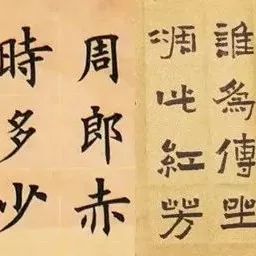 周郎赤
時多少
誰為傳坐
凋此紅芳